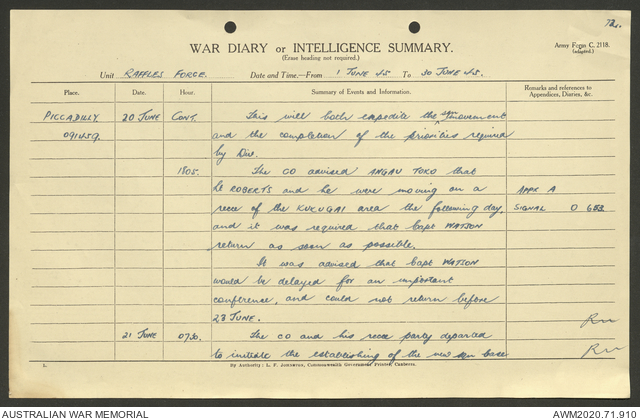 72.
WAR DIARY or INTELLIGENCE SUMMARY.
(Erase heading not required.)
Army Form C. 2118.
(adapted.)
Unit RAFFLES FORCE. Date and Time.—From 1 JUNE 45 To 30 JUNE 45.
Place. Date. Hour. Summary of Events and Information. Remarks and references to Appendices, Diaries, &c.
PICCADILLY 20 JUNE CONT. This will both expedite the movement
091459. and the completion of the priorities required
by Div.
1805. The CO advised ANGAU TOKO that
ROBERTS and he were moving on a APPX A
recce of the KUKUGAI area the following day, SIGNAL O 653
and it was required that Capt WATSON
return as soon as possible.
It was advised that Capt WATSON
would be delayed for an important
conference, and could not return before
23 JUNE.
21 JUNE 0730. The CO and his recce party departed
to initiate the establishing of the new base
5. By Authority: L. F. Johnston, Commonwealth Government Printer, Canberra.
AUSTRALIAN WAR MEMORIAL AWM2020.71.910